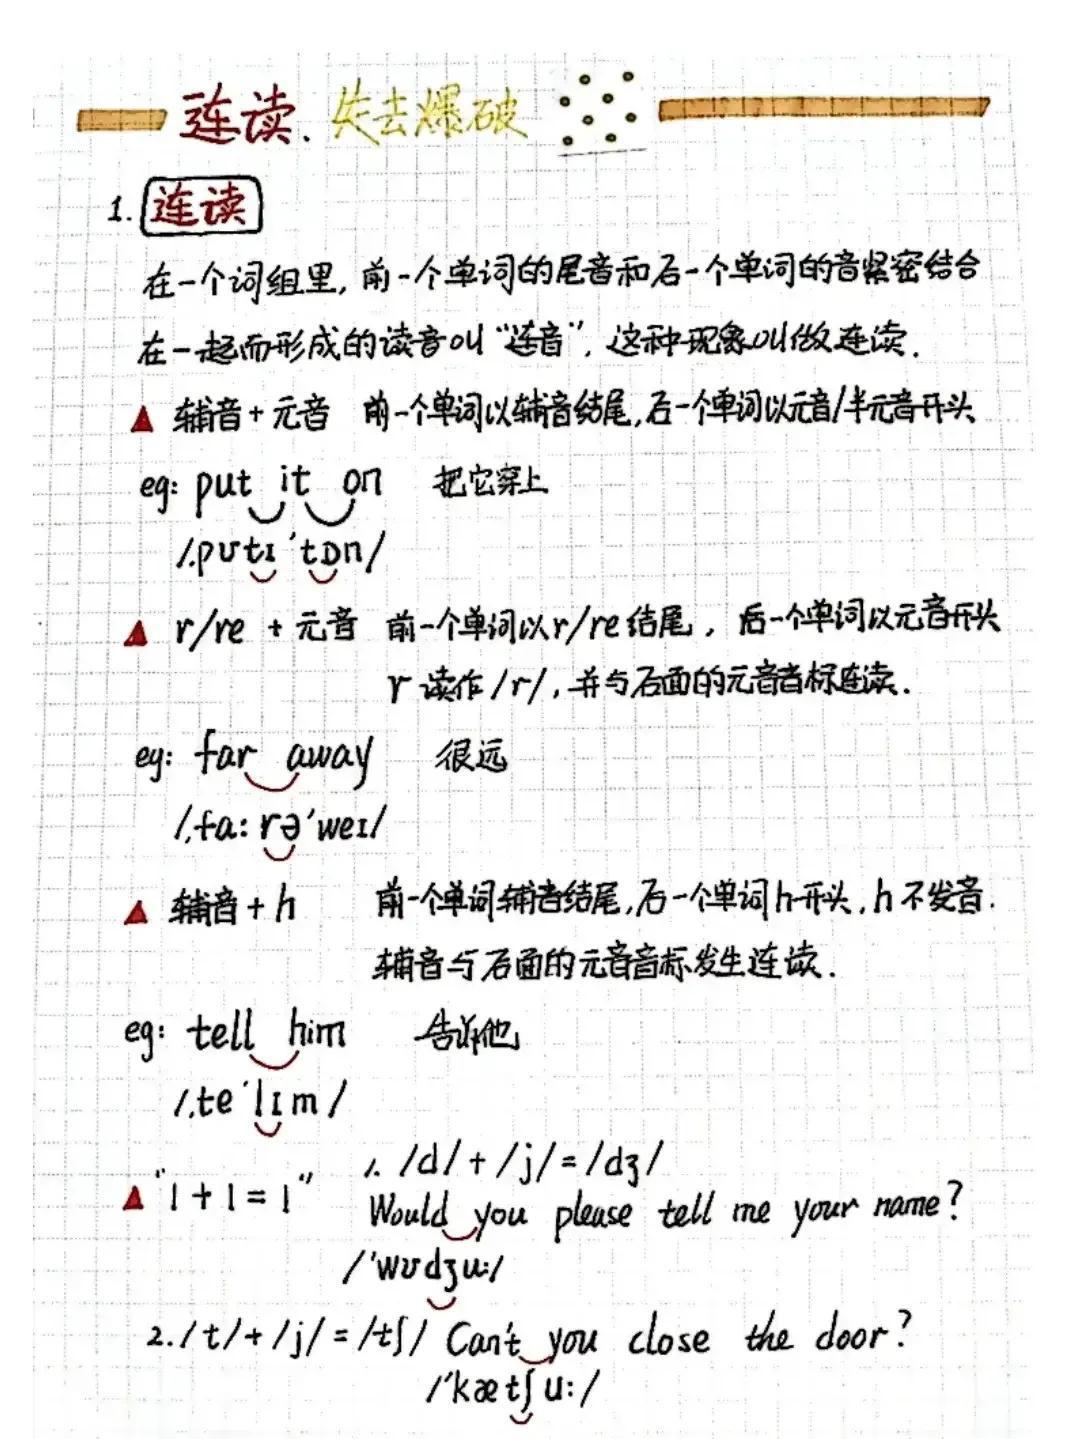 连读、失去爆破
1. 连读
在一个词组里, 前一个单词的尾音和后一个单词的音紧密结合
在一起而形成的读音叫“连音”, 这种现象叫做连读.
▲ 辅音+元音 前一个单词以辅音结尾,后一个单词以元音/半元音开头
eg: put it on 把它穿上
/ˌpʊtɪˈtɒn/
▲ r/re +元音 前一个单词以r/re结尾, 后一个单词以元音开头
r 读作/r/, 并与后面的元音音标连读.
eg: far away 很远
/ˌfa:rəˈweɪ/
▲ 辅音+h 前一个单词辅音结尾,后一个单词h开头, h不发音.
辅音与后面的元音音标发生连读.
eg: tell him 告诉他
/ˌteˈlɪm/
▲ “1+1=1” 1. /d/+/j/=/dʒ/
Would you please tell me your name?
/ˈwʊdʒu:/
2. /t/+/j/=/tʃ/ Can't you close the door?
/ˈkætʃu:/